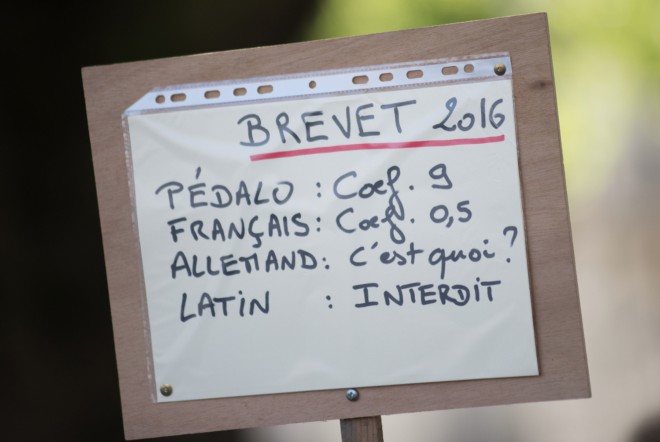 BREVET 2016
PÉDALO : Coef. 9
FRANÇAIS : Coef. 0,5
ALLEMAND : C'est quoi ?
LATIN : INTERDIT